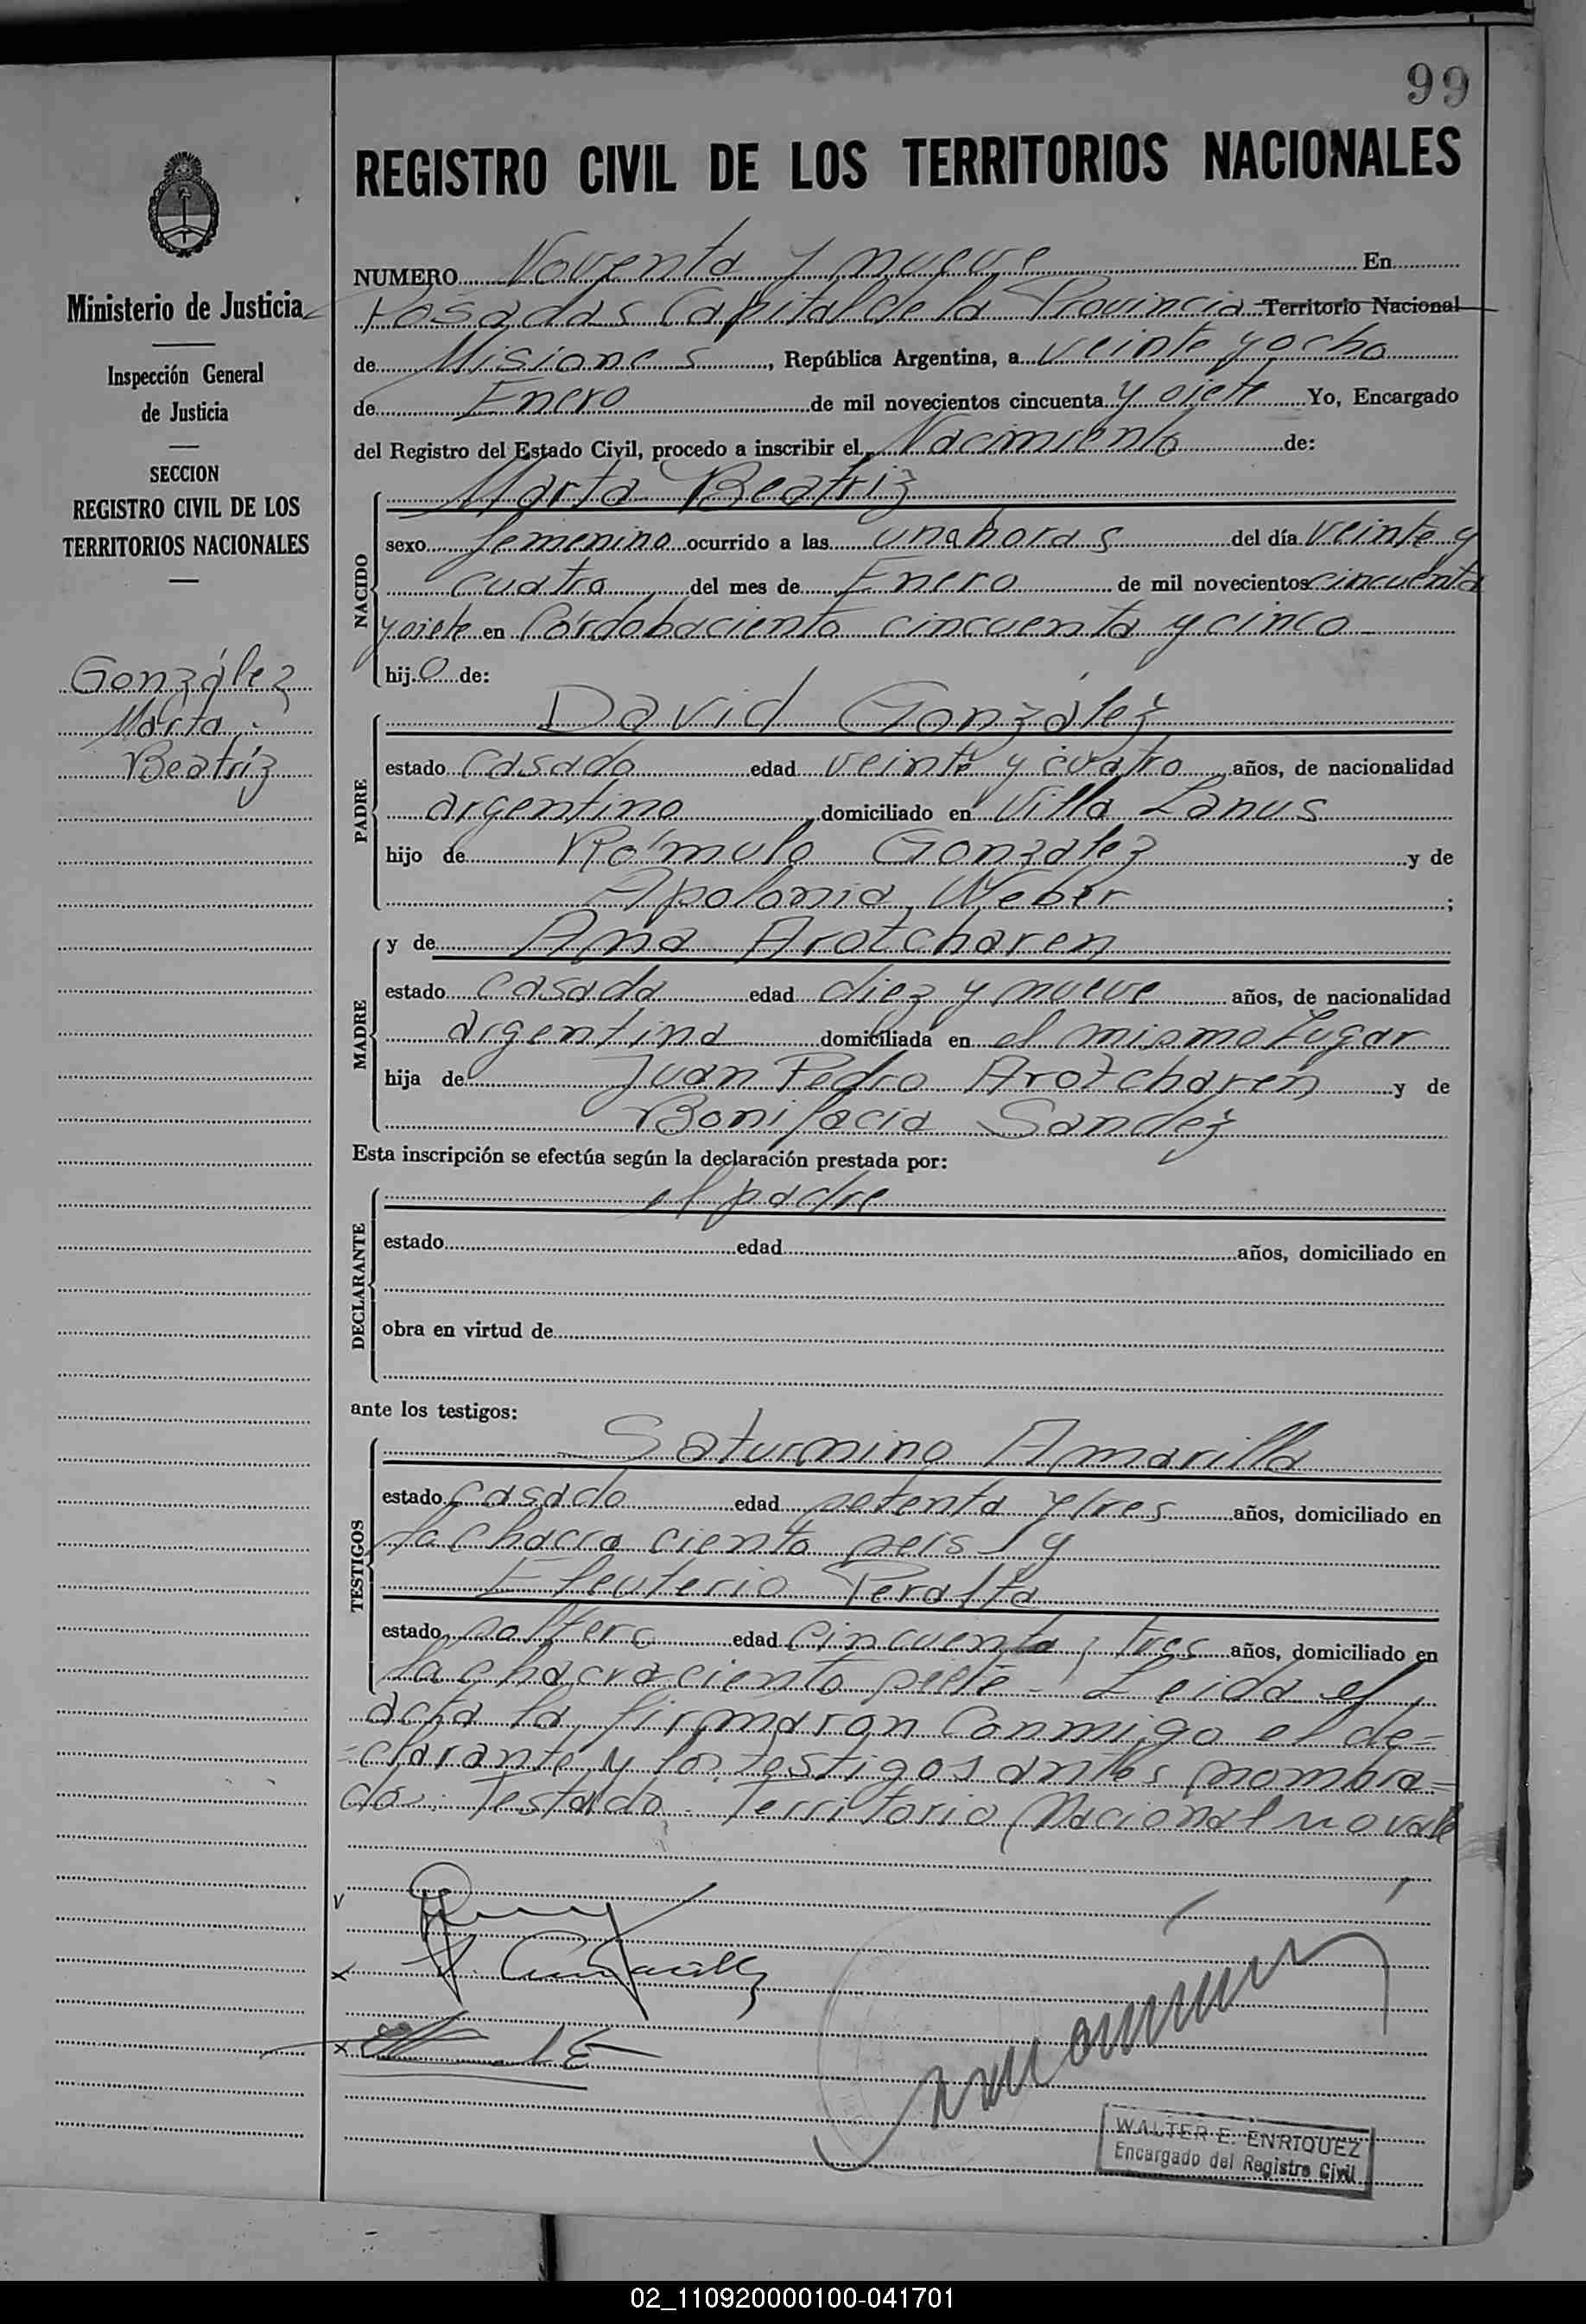 99
REGISTRO CIVIL DE LOS TERRITORIOS NACIONALES
Ministerio de Justicia
Inspección General
de Justicia
SECCION
REGISTRO CIVIL DE LOS
TERRITORIOS NACIONALES
González
Marta
Beatriz
NUMERO Noventa y nueve En
Posadas Capital de la Provincia Territorio Nacional
de Misiones, República Argentina, a veinte y ocho
de Enero de mil novecientos cincuenta y siete Yo, Encargado
del Registro del Estado Civil, procedo a inscribir el Nacimiento de:
NACIDO
Marta Beatriz
sexo femenino ocurrido a las una horas del día veinte y
cuatro del mes de Enero de mil novecientos cincuenta
y siete en Córdoba ciento cincuenta y cinco
hij o de:
PADRE
David González
estado casado edad veinte y cuatro años, de nacionalidad
argentino domiciliado en Villa Lanus
hijo de Rómulo Gonzalez y de
Apolonia Weber ;
MADRE
y de Ana Arotcharen
estado casada edad diez y nueve años, de nacionalidad
argentina domiciliada en el mismo lugar
hija de Juan Pedro Arotcharen y de
Bonifacia Sandez
Esta inscripción se efectúa según la declaración prestada por:
DECLARANTE
el padre
estado edad años, domiciliado en
obra en virtud de
ante los testigos:
TESTIGOS
Saturnino Amarilla
estado casado edad setenta y tres años, domiciliado en
la chacra ciento seis y
Eleuterio Peralta
estado soltero edad cincuenta y tres años, domiciliado en
la chacra ciento siete - Leida el
acta la firmaron conmigo el de=
=clarante y los testigos antes nombra=
dos. Testado: Territorio Nacional no vale
WALTER E. ENRIQUEZ
Encargado del Registro Civil
02_110920000100-041701